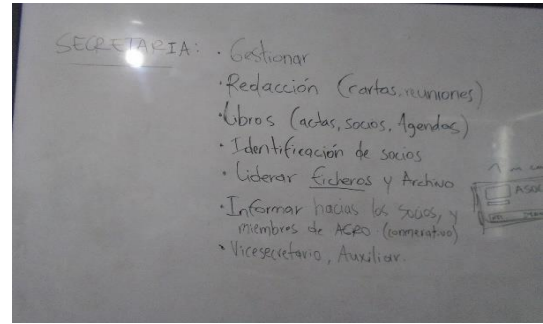 SECRETARIA: · Gestionar
· Redacción (cartas, reuniones)
· Libros (actas, socios, Agendas)
· Identificación de socios
· Liderar ficheros y Archivo
· Informar hacias los socios, y
miembros de ACRO
· Vicesecretario, Auxiliar.